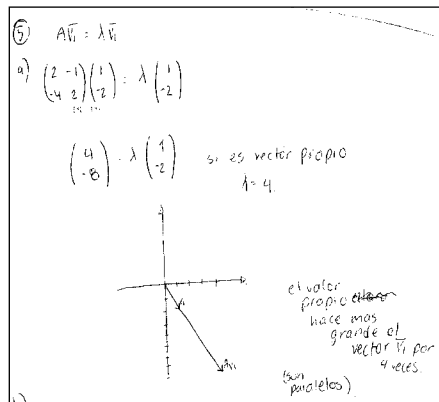 ⑤ A v̄₁ = λ v̄₁
a) (2 -1 / -4 2) (1 / -2) = λ (1 / -2)
(4 / -8) = λ (1 / -2) si es vector propio
λ = 4.
v₁
Av₁
el valor
propio
hace mas
grande el
vector v̄₁ por
4 veces.
(son
paralelos)